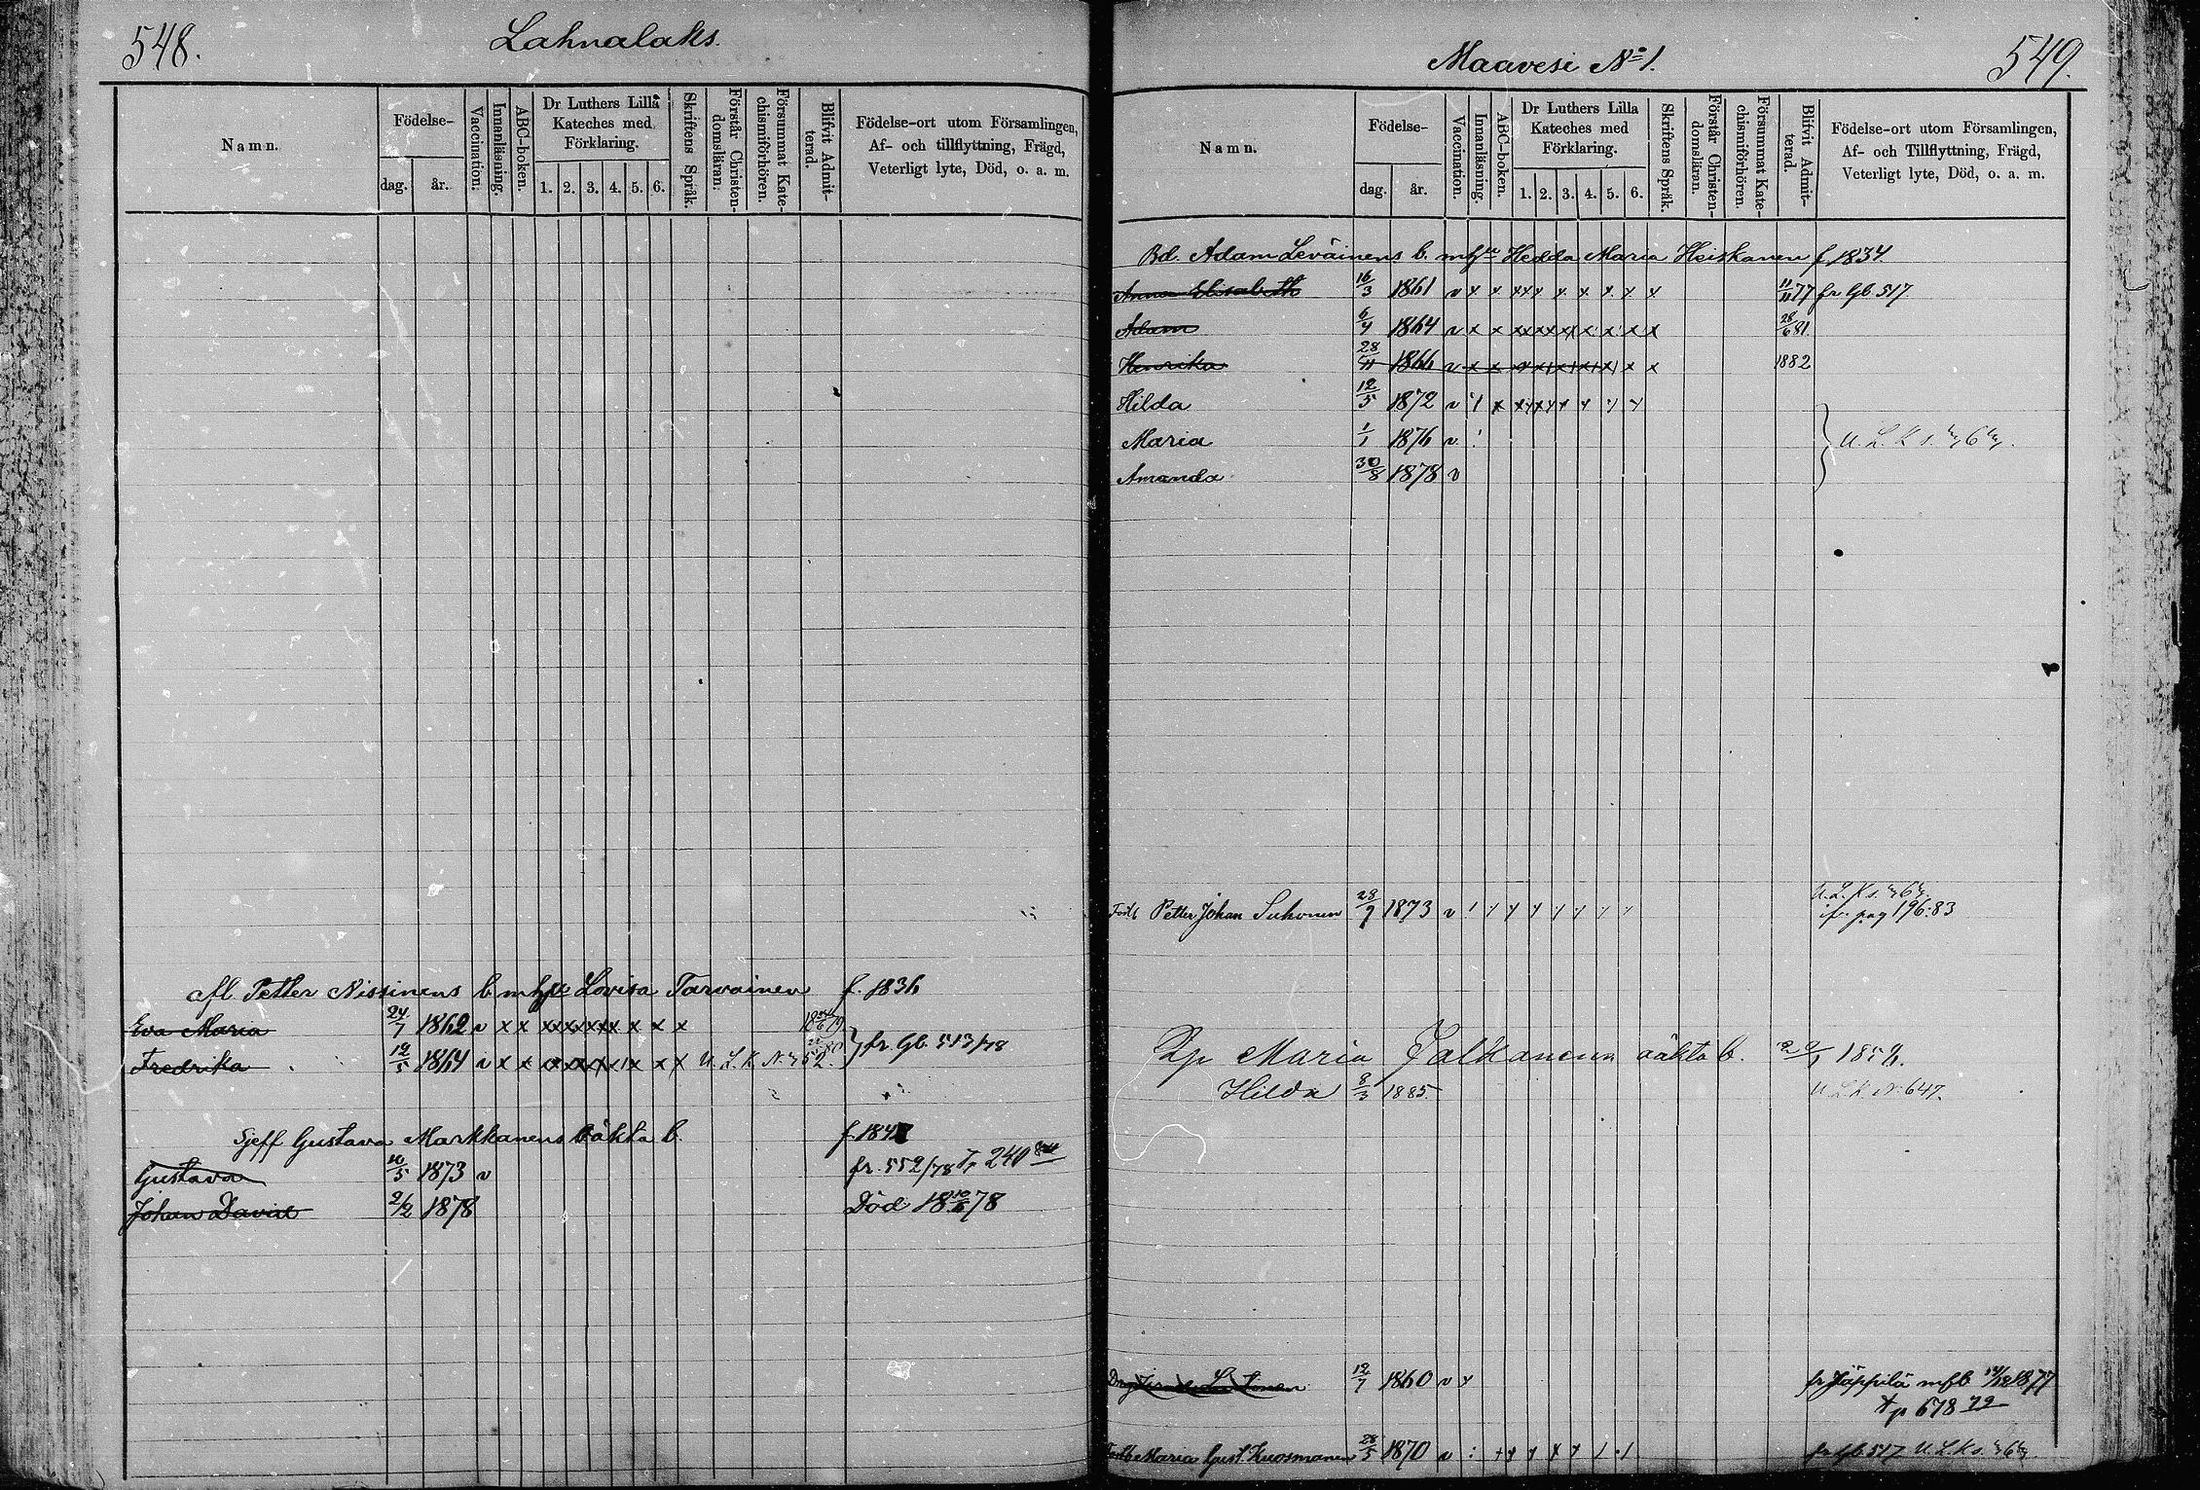 548.
Lahnalaks.
Namn.
Födelse-
dag.
år.
Vaccination.
Innanläsning.
ABC-boken.
Dr Luthers Lilla
Kateches med
Förklaring.
1. 2. 3. 4. 5. 6.
Skriftens Språk.
Förstår Christen-
domsläran.
Försummat Kate-
chismiförhören.
Blifvit Admit-
terad.
Födelse-ort utom Församlingen,
Af- och tillflyttning, Frägd,
Veterligt lyte, Död, o. a. m.
afl Petter Nissinens b. mhu Lovisa Tarvainen f. 1836
Eva Maria 24/7 1862 v x x xxxxxxx x x x
Fredrika 12/5 1864 v x x U.L.K. N:
} fr. Gb. 513/78
Gustava Markkanens oäkta b. f. 184
Gustava 10/5 1873 v fr. 552/78 Tr 240
Johan David 2/2 1878 Död 18 10/6 78
549.
Maavesi No 1.
Namn.
Födelse-
dag.
år.
Vaccination.
Innanläsning.
ABC-boken.
Dr Luthers Lilla
Kateches med
Förklaring.
1. 2. 3. 4. 5. 6.
Skriftens Språk.
Förstår Christen-
domsläran.
Försummat Kate-
chismiförhören.
Blifvit Admit-
terad.
Födelse-ort utom Församlingen,
Af- och Tillflyttning, Frägd,
Veterligt lyte, Död, o. a. m.
Bd. Adam Leväinens b. mhu Hedda Maria Heiskanen f 1834
Anna Elisabeth 16/3 1861 v x x xxx x x x x x 11/11 77 fr Gb. 517
Adam 6/4 1864 v x x 28/6 81.
Henrika 28/11 1866 v x x 1882
Hilda 12/5 1872 v
Maria 1/1 1876 v
Amanda 30/8 1878 v
U.L.K s.
Petter Johan Suhonen 28/9 1873 v
U.L.K s.
ifr. pag 196:83
Maria Jalkanens oäkta b.
Hilda 8/3 1885.
U.L.K. N: 647.
12/7 1860 v x fr Jäppilä mfb 1877
p 678 79
Maria Gust. Kuosmanen 28/5 1870 v fr gb 517 U.L.K s.